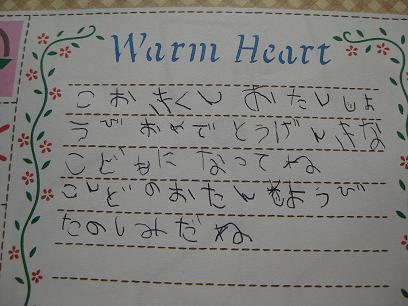 Warm Heart
こおきくん おたんじょ
うび おめでとうげんきな
こどもに なってね
こんどのおたんじょうび
たのしみだね